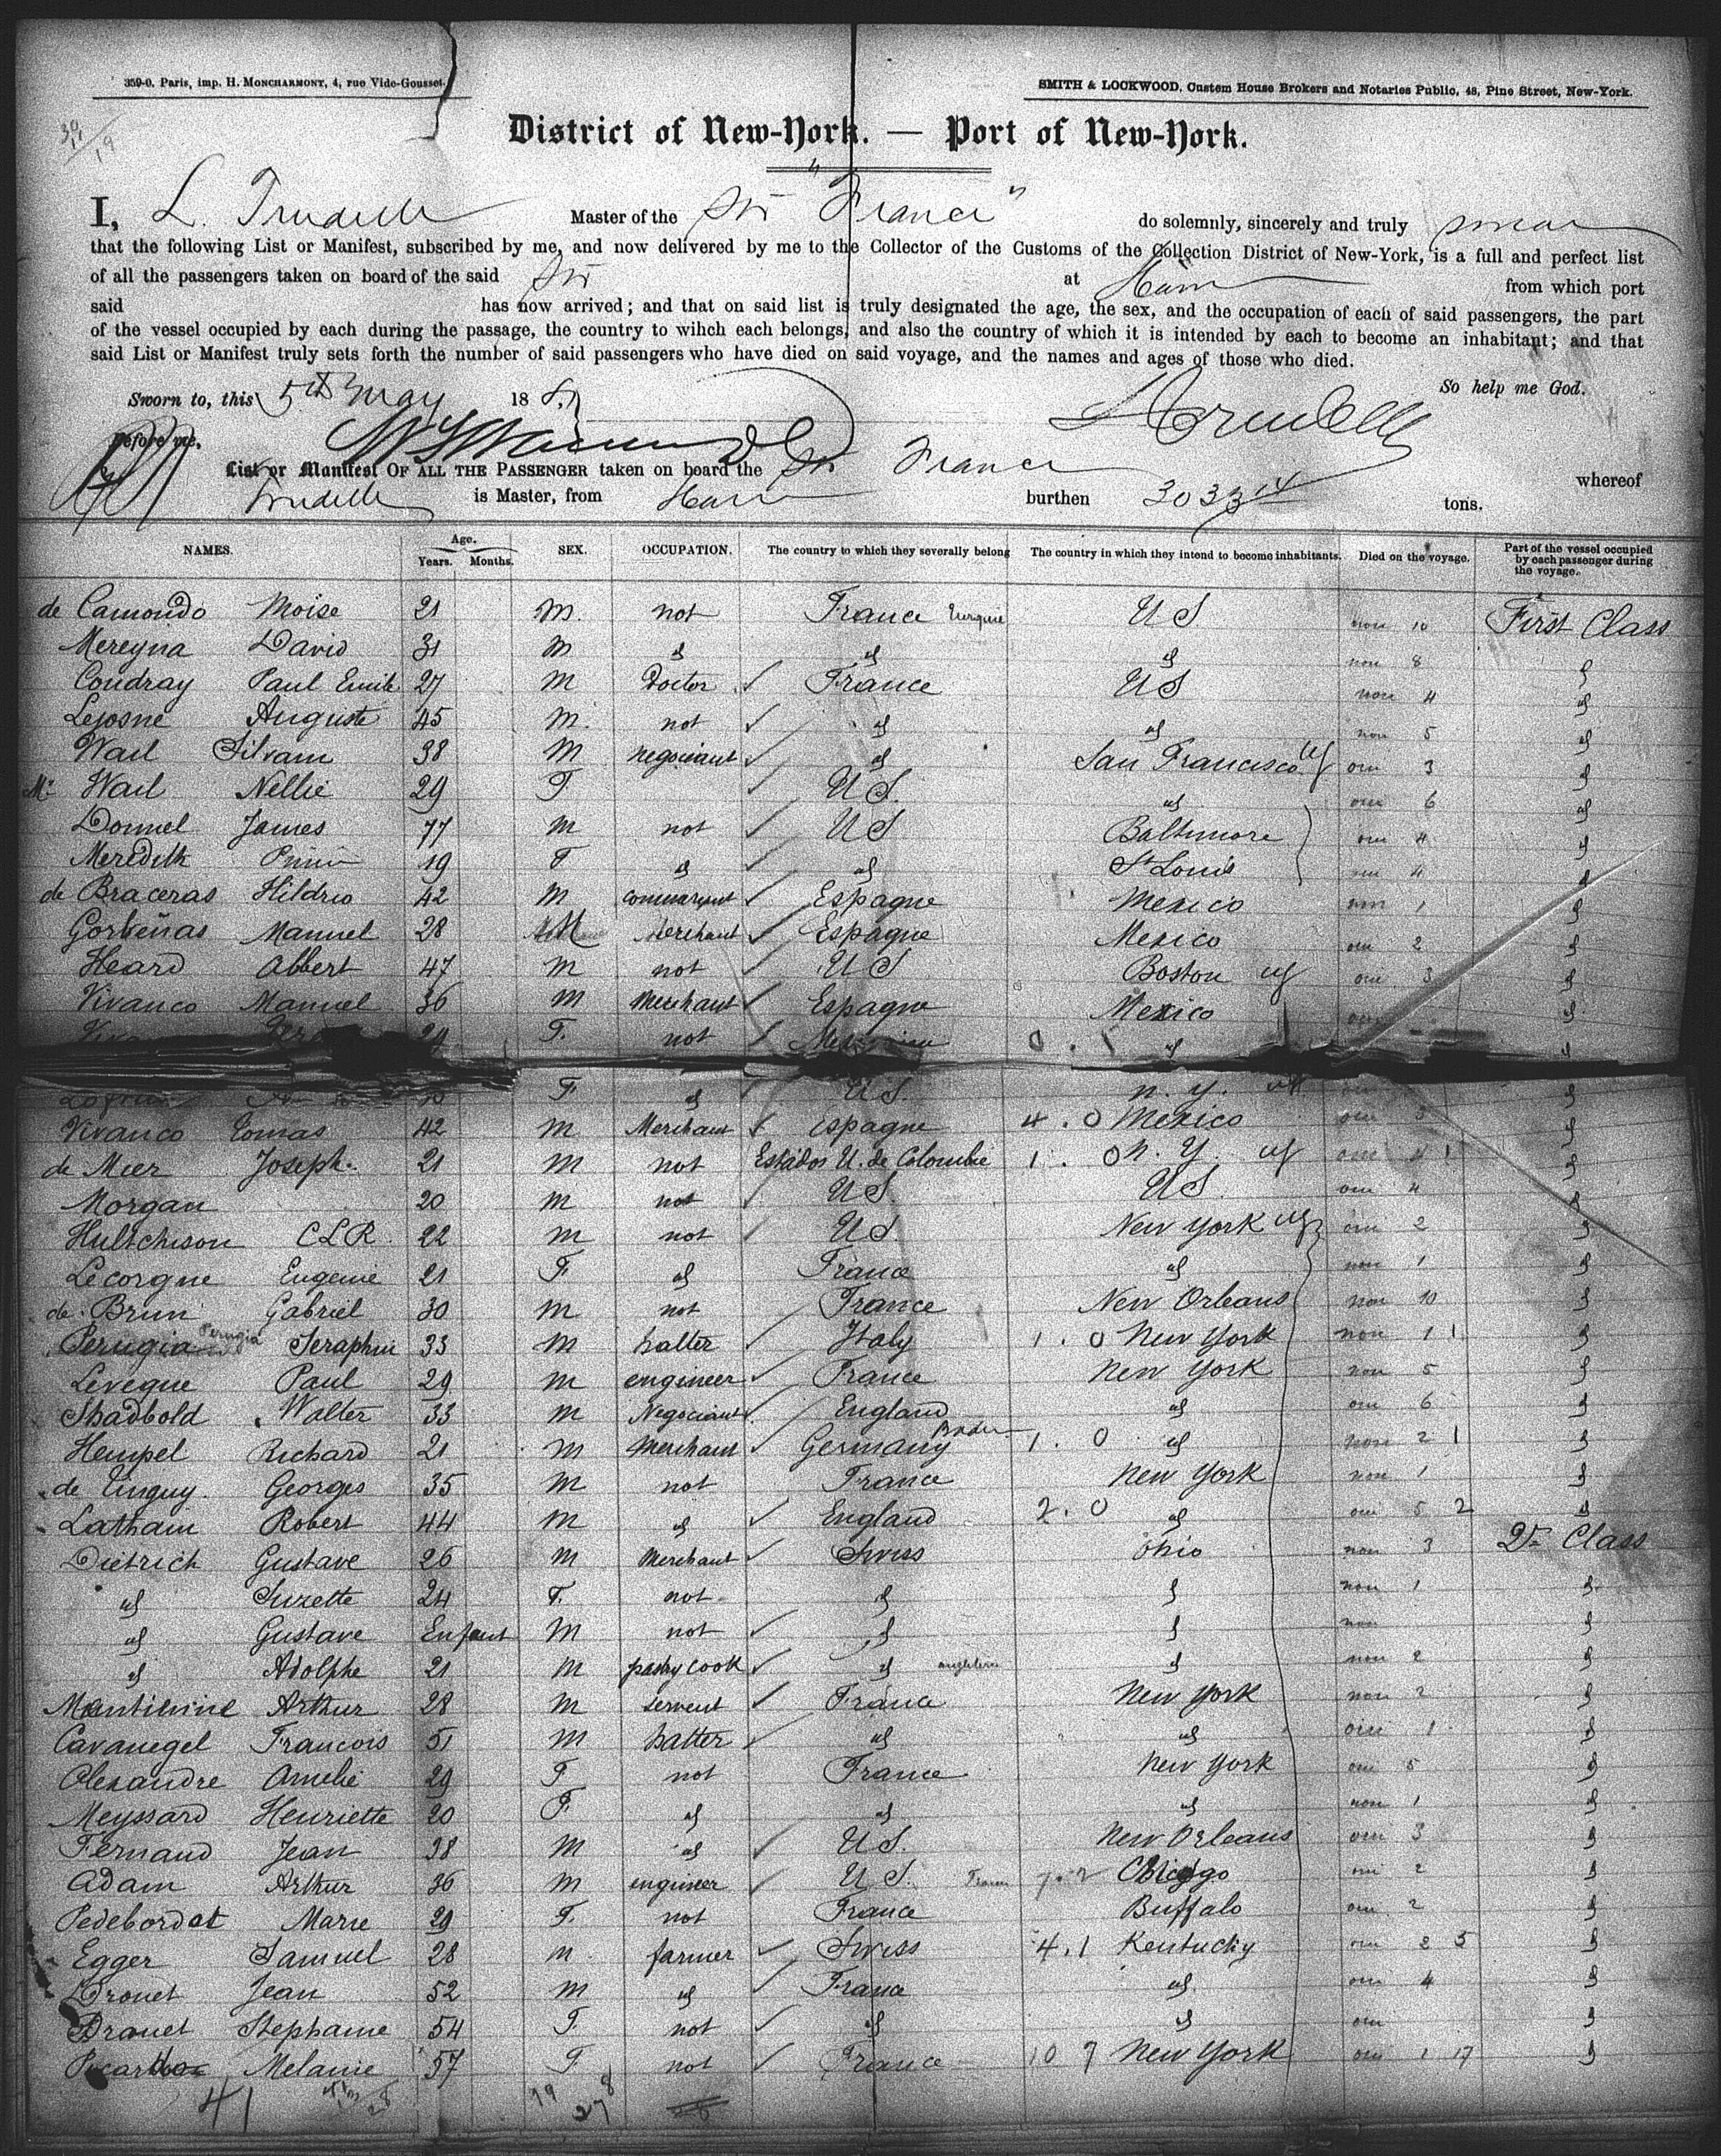 359-0. Paris, imp. H. MONCHARMONT, 4, rue Vide-Gousset.
SMITH & LOCKWOOD, Custom House Brokers and Notaries Public, 48, Pine Street, New-York.
District of New-York. — Port of New-York.
I, L. Trudelle Master of the Str "France" do solemnly, sincerely and truly swear
that the following List or Manifest, subscribed by me, and now delivered by me to the Collector of the Customs of the Collection District of New-York, is a full and perfect list
of all the passengers taken on board of the said Str at Havre from which port
said has now arrived; and that on said list is truly designated the age, the sex, and the occupation of each of said passengers, the part
of the vessel occupied by each during the passage, the country to wihch each belongs, and also the country of which it is intended by each to become an inhabitant; and that
said List or Manifest truly sets forth the number of said passengers who have died on said voyage, and the names and ages of those who died.
So help me God.
Sworn to, this 5th May 188
Before me, LTrudelle
List or Manifest OF ALL THE PASSENGER taken on board the Str France whereof
Trudelle is Master, from Havre burthen 3033 tons.
NAMES. Age. Years. Months. SEX. OCCUPATION. The country to which they severally belong The country in which they intend to become inhabitants. Died on the voyage. Part of the vessel occupied by each passenger during the voyage.
de Camondo Moïse 21 M. not France Turquie US non 10 First Class
Mereyna David 31 M id id id non 8 id
Coudray Paul Emile 27 M Doctor France US non 4 id
Lejosne Auguste 45 M. not id id non 5 id
Wail Silvain 38 M negociant id San Francisco oui 3 id
Wail Nellie 29 F US. id oui 6 id
Donnel James 77 M not US Baltimore oui 4 id
Meredith 19 F id id St Louis oui 4 id
de Braceras Hildrio 42 M Espagne Mexico non 1 id
Gorbeñas Manuel 28 M Merchant Espagne Mexico oui 2 id
Heard Abbert 47 M not US Boston oui 3 id
Vivanco Manuel 36 M Merchant Espagne Mexico oui id
29 F. not id id
F id US. N. Y. oui id
Vivanco Tomas 42 M Merchant Espagne 4 . 0 Mexico oui 3 id
de Meer Joseph. 21 M not Estados U. de Colombie 1 . 0 N. Y. oui 4 1 id
Morgan 20 M not US. US. oui 4 id
Hultchison CLR. 22 M not US New York oui 2 id
Lecorgne Eugenie 21 F id France id non 1 id
de Brun Gabriel 30 M not France New Orleans non 10 id
Perugia Perugia Seraphin 33 M hatter Italy 1 . 0 New York non 1 1 id
Leveque Paul 29 M engineer France New York non 5 id
Shadbold Walter 33 M Negociant England id oui 6 id
Hempel Richard 21 M Merchant Germany 1 . 0 id non 2 1 id
de Tinguy. Georges 35 M not France New York non 1 id
Latham Robert 44 M id England 2 . 0 id oui 5 2 id
Dietrich Gustave 26 M Merchant Swiss Ohio non 3 2d Class
id Suzette 24 F. not id id non 1 id
id Gustave Enfant M not id id non id
id Adolphe 21 M pastry cook id angleterre id non 2 id
Arthur 28 M servent France New York non 2 id
Cavanegel Francois 51 M hatter id id oui 1 id
Alexandre Amelie 29 F not France New York oui 5 id
Meyssard Henriette 20 F id id id non 1 id
Fernand Jean 38 M id US. New Orleans oui 3 id
Adam Arthur 36 M engineer US. France Chicago oui 2 id
Pedebordet Marie 29 F. not France Buffalo oui 2 id
Egger Samuel 28 M. farmer Swiss 4 . 1 Kentucky oui 2 5 id
Drouet Jean 52 M id France id. oui 4 id
Drouet Stephanie 54 F. not id id oui id
Melanie 57 F not France 10 7 New York oui 1 17 id
41 19 27 8